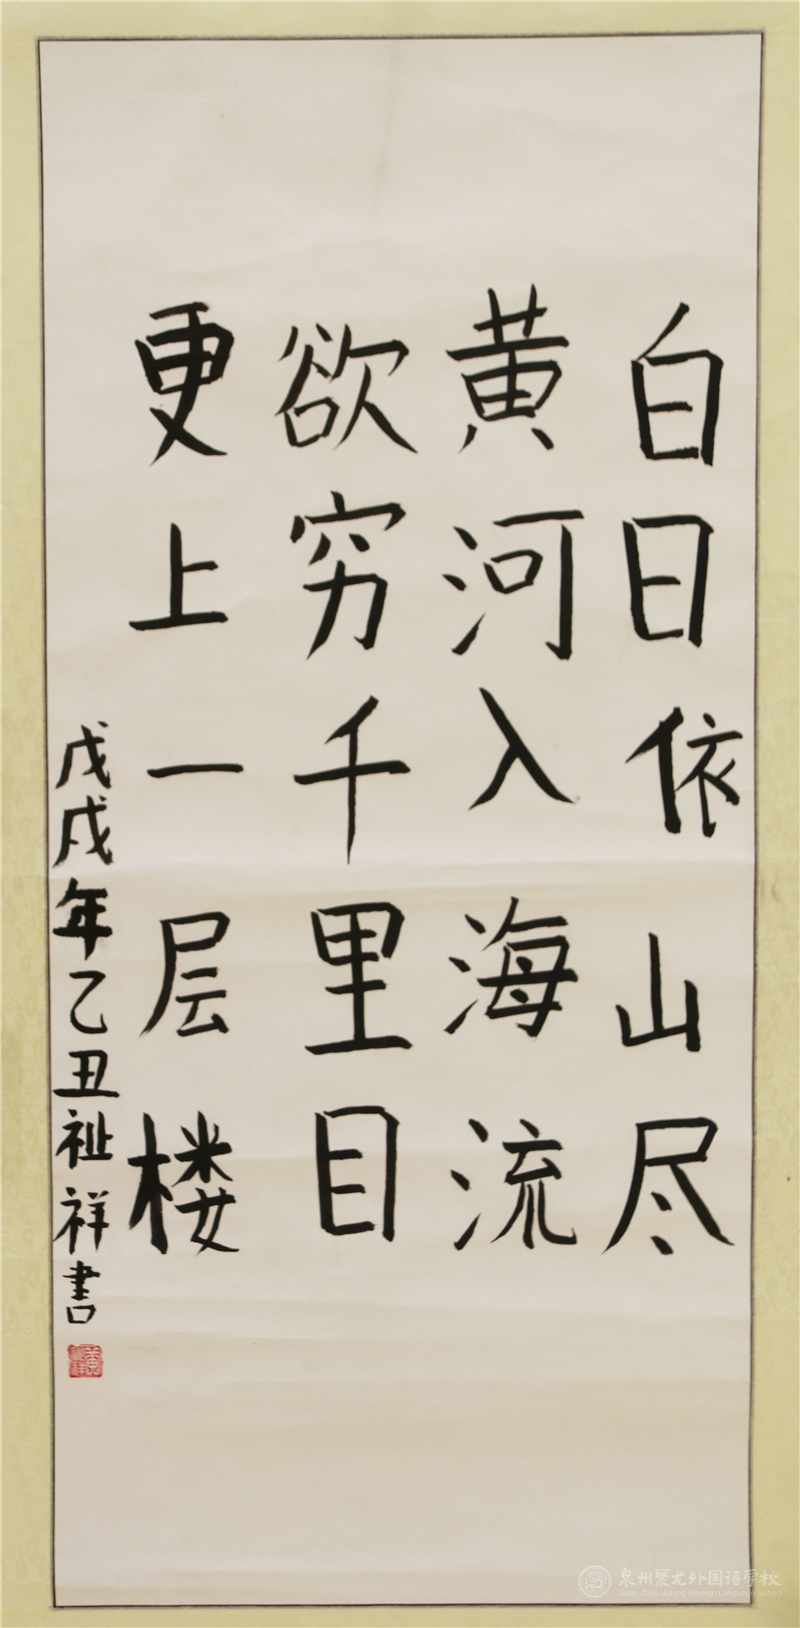 白日依山尽
黄河入海流
欲穷千里目
更上一层楼
戊戌年乙丑祉祥書
泉州聚龙外国语学校
Quan Zhou Julong Foreign Language School